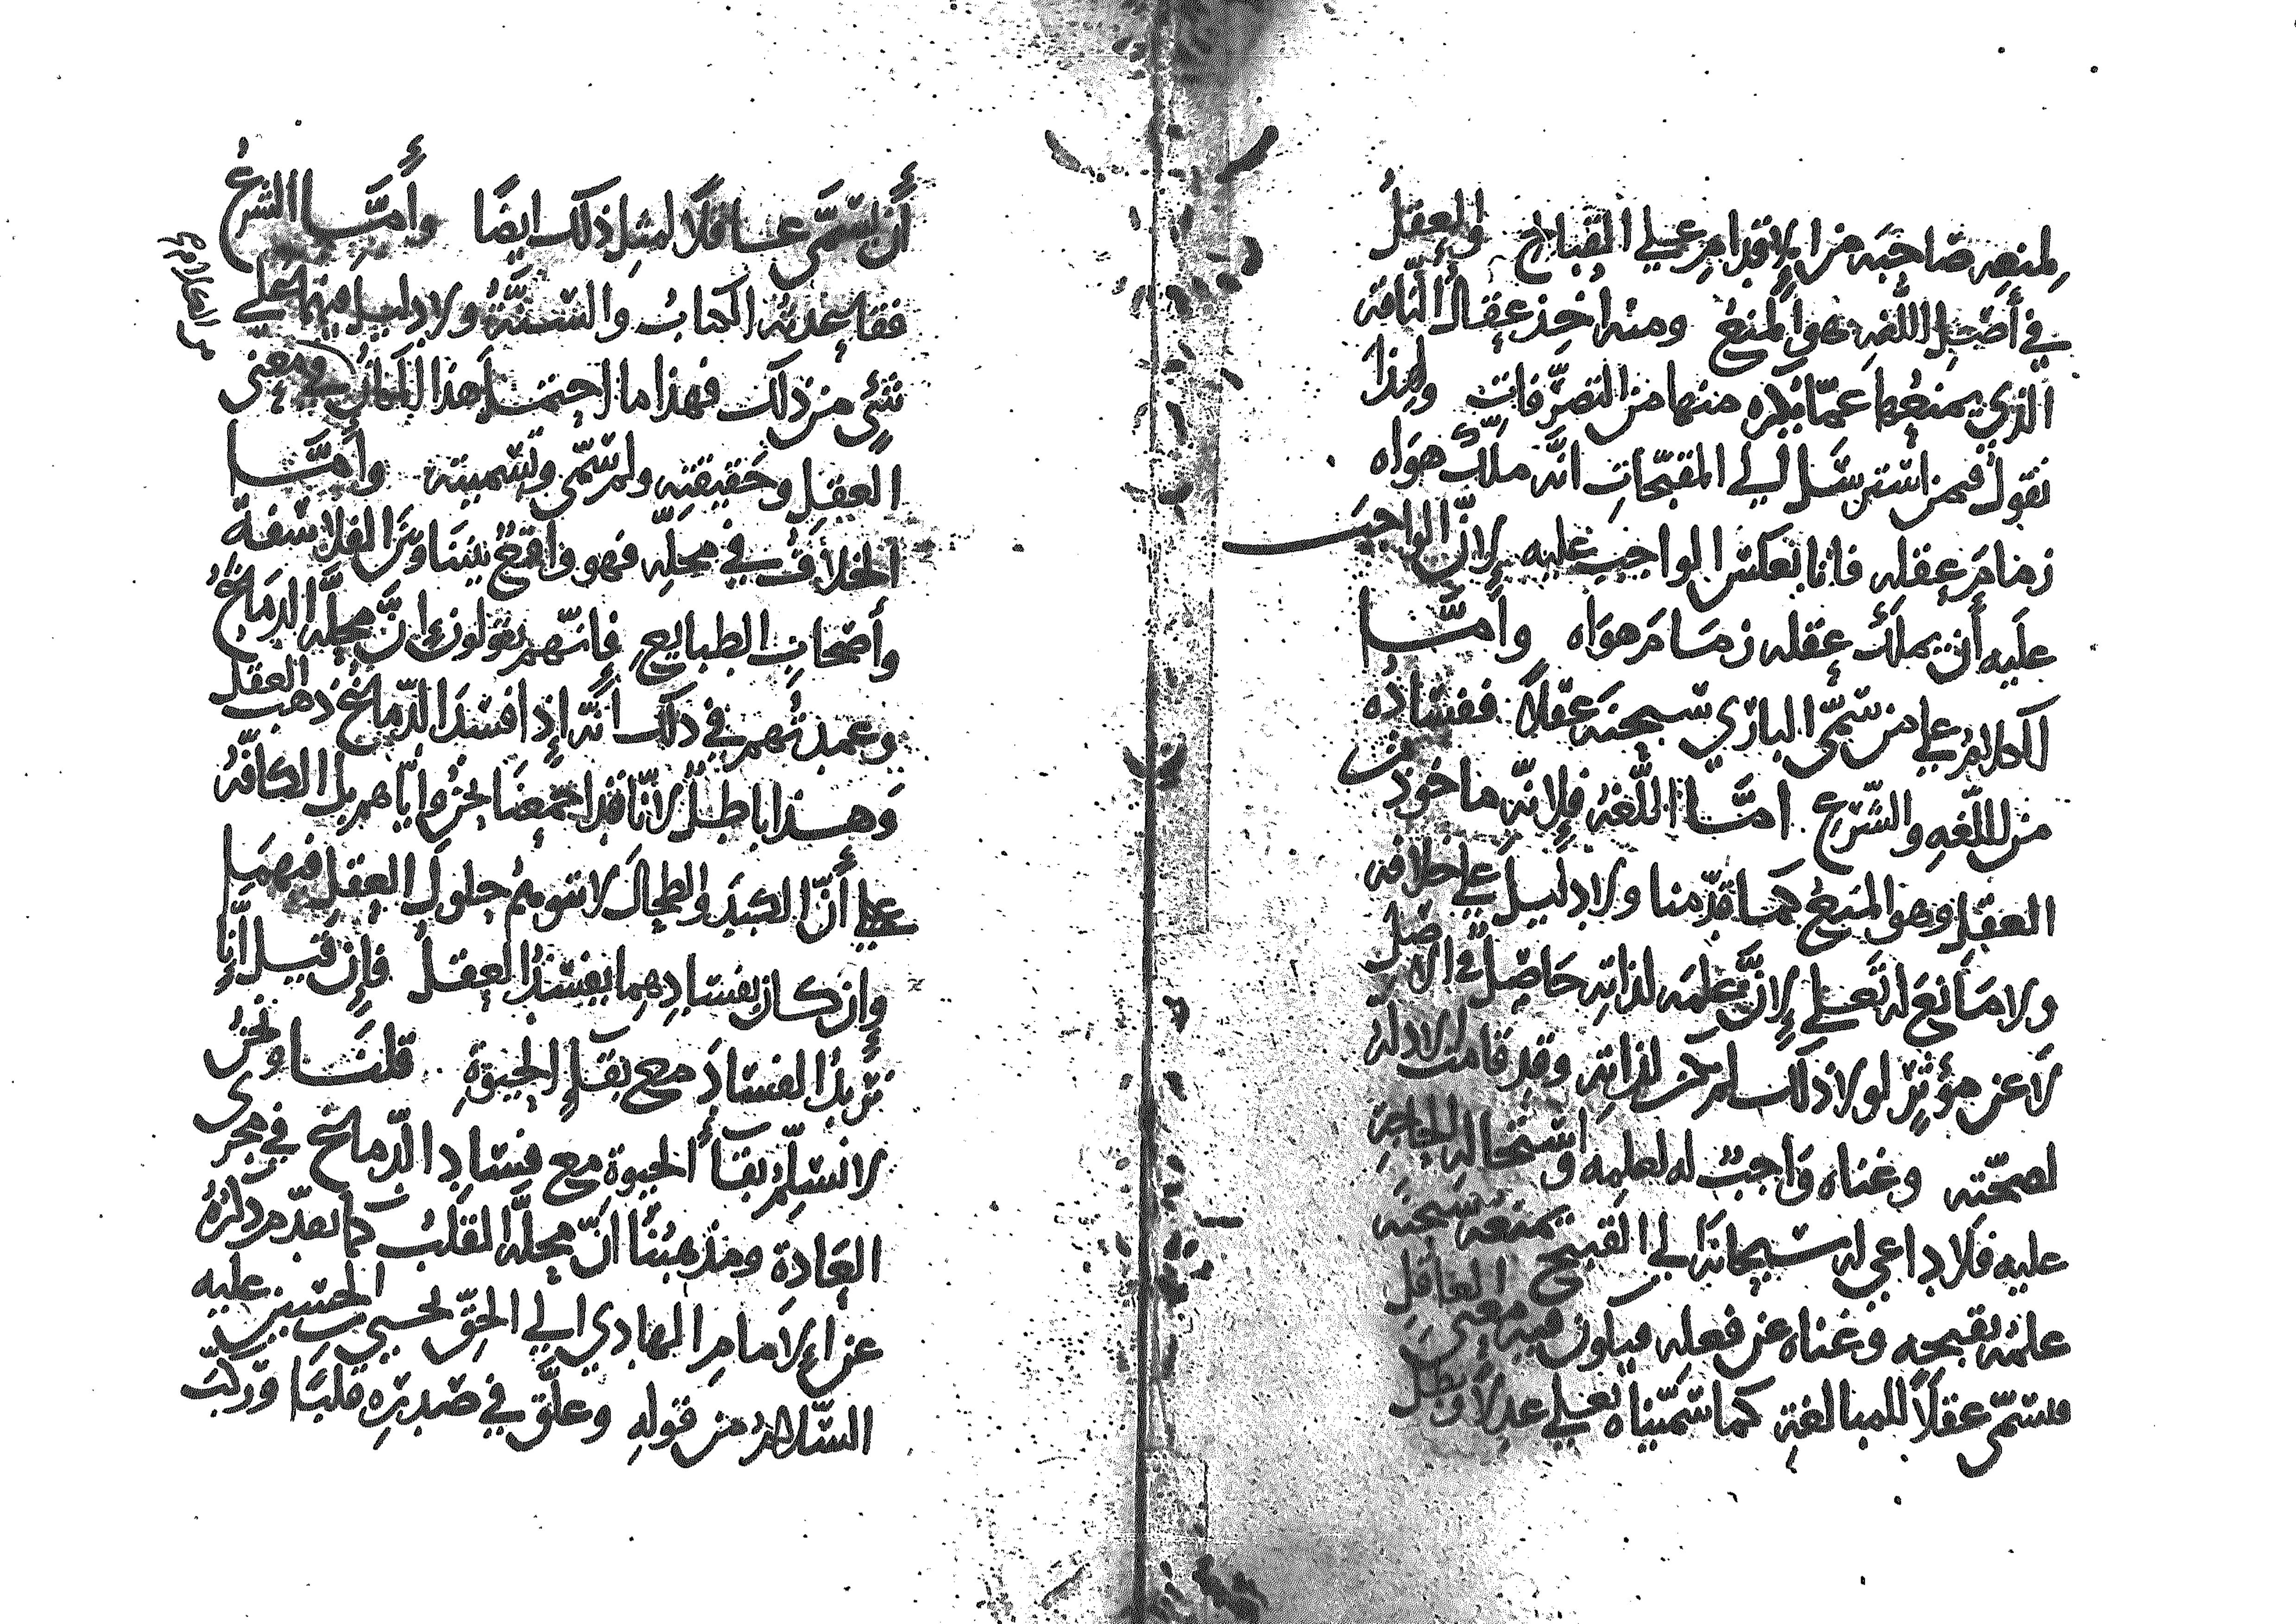 لمنعه صاحبه من الإقدام على القبائح والعقل
في أصل اللغة هو المنع ومنه اخذ عقال الناقة
الذي يمنعها عما تكره منها من التصرفات ولهذا
نقول فيمن استرسل الى المقبحات انه ملك هواه
زمام عقله فانا نعكس الواجب عليه لان الواجب
عليه أن يملك عقله زمام هواه وأما
الكلام على من سمى الباري سبحنه عقلا ففساده من
من اللغه والشرع اما اللغة فلانه ماخوذ
العقل وهو المنع كما قدمنا ولا دليل على خلافه
ولا مانع له تعلى لان علمه لذاته حاصل في الاصل
لا عن مؤثر لولا ذلك لم يكن لذاته وقد قامت الادلة
لصحته وغناه واجب له لعلمه واستحالة الحاجة
عليه فلا داعي له سبحانه الى القبيح يمنعه سبحنه
علمه بقبحه وغناه عن فعله فيكون فيه معنى العاقل
فسمي عقلا للمبالغة كما سميناه تعلى عدلا وبطل
أن يسمى عاقلا لمثل ذلك ايضا وأما الشرع
فقاعدته الكتاب والسنة ولا دليل فيهما على
شي من ذلك فهذا ما احتمل هذا المكان في معنى من الكلام
العقل وحقيقته والمسمى وتسميته وأما
الخلاف في محله فهو واقع بيننا وبين الفلاسفة
وأصحاب الطبايع فإنهم يقولون إن محله الدماغ
وعمدتهم في ذلك أنه إذا فسد الدماغ ذهب العقل
وهذا باطل لأنا قد اجتمعنا نحن وإياهم بل الكافة
على أن الكبد والطحال لا نتوهم حلول العقل فيهما
وإن كان بفسادهما يفسد العقل فإن قيل إنا
نريد الفساد مع بقاء الحيوة قلنا ونحن
لا نسلم بقاء الحيوة مع فساد الدماغ في مجرى
العادة ومذهبنا أن محله القلب كما تقدم ذكره
عن الإمام الهادي إلى الحق يحيى بن الحسين عليه
السلام من قوله وعلق في صدره قلبا وركب